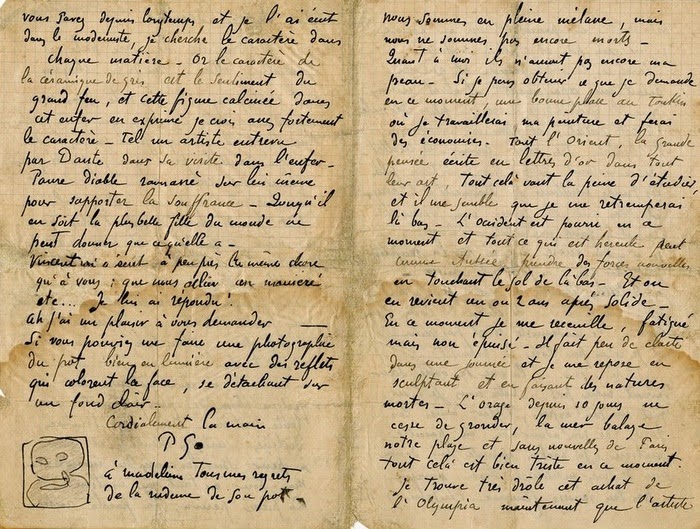 vous savez depuis longtemps et je l'ai écrit
dans le moderniste, je cherche le caractère dans
chaque matière - Or le caractère de
la céramique de grès est le sentiment du
grand feu, et cette figure calcinée dans
cet enfer en exprime je crois assez fortement
le caractère - Tel un artiste entrevu
par Dante dans sa visite dans l'enfer -
Pauvre diable ramassé sur lui même
pour supporter la souffrance - Quoiqu'il
en soit la plus belle fille du monde ne
peut donner que ce qu'elle a -
Vincent m'a écrit à peu près la même chose
qu'à vous ; que nous allions
etc... Je lui ai répondu !
Ah j'ai un plaisir à vous demander
Si vous pouviez me faire une photographie
du pot bien en lumière avec des reflets
qui colorent la face, se détachant sur
un fond clair..
Cordialement la main
P Go
à madeleine tous mes regrets
de la de son pot
nous sommes en pleine mélasse, mais
nous ne sommes pas encore morts -
Quant à moi ils n'auront pas encore ma
peau - Si je peux obtenir ce que je demande
en ce moment, une bonne place au Tonkin
où je travaillerai ma peinture et ferai
des économies. Tout l'Orient, la grande
pensée écrite en lettres d'or dans tout
leur art, tout celà vaut la peine d'étudier
et il me semble que je me retremperai
là bas - L'occident est pourri en ce
moment et tout ce qui est hercule peut
comme Antée prendre des forces nouvelles
en touchant le sol de là bas - Et on
en revient un ou 2 ans après solide -
En ce moment je me recueille, fatigué
mais non épuisé - Il fait peu de clarté
dans une journée et je me repose en
sculptant et en faisant des natures
mortes - L'orage depuis 10 jours ne
cesse de gronder, la mer balaye
notre plage et sans nouvelles de Paris
tout celà est bien triste en ce moment.
Je trouve très drôle cet achat de
l'Olympia maintenant que l'artiste